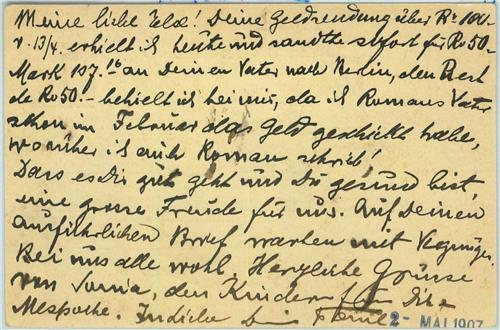 Meine liebe Ida! Deine Geldsendung über Rs 100.-
v. 13/4. erhielt ich heute und sandte sofort für Rs 50.-
Mark 107.16 an Deinen Vater nach Berlin, den Rest
de Rs 50.- behielt ich bei mir, da ich Romans Vater
schon im Februar das Geld geschickt habe,
worüber ich auch Roman schrieb!
Dass es Dir gut geht und Du gesund bist,
eine grosse Freude für uns. Auf Deinen
ausführlichen Brief warten mit Vergnügen.
Bei uns alle wohl. Herzliche Grüsse
von Sonia, den Kindern
Mespoche. Indiche
2- MAI 1907